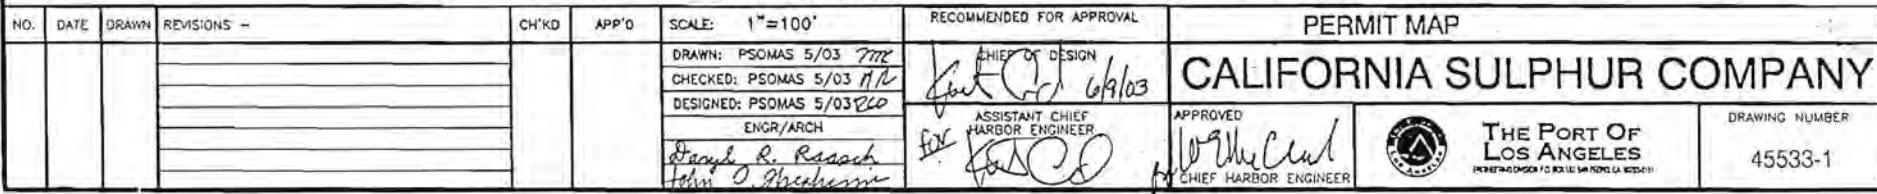 NO. DATE DRAWN REVISIONS - CH'KD APP'D
SCALE: 1"=100'
DRAWN: PSOMAS 5/03
CHECKED: PSOMAS 5/03
DESIGNED: PSOMAS 5/03
ENGR/ARCH
Daryl R. Raasch
John D.
RECOMMENDED FOR APPROVAL
CHIEF OF DESIGN
6/9/03
ASSISTANT CHIEF
HARBOR ENGINEER
for
PERMIT MAP
CALIFORNIA SULPHUR COMPANY
APPROVED
CHIEF HARBOR ENGINEER
THE PORT OF
LOS ANGELES
DRAWING NUMBER
45533-1